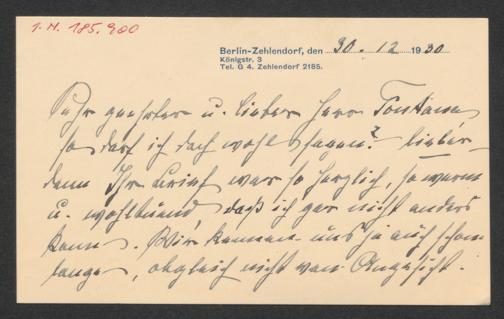 I. N. 185.900
Berlin-Zehlendorf, den 30. 12 1930
Königstr. 3
Tel. G 4. Zehlendorf 2185.
Sehr geehrter u. lieber Herr
so darf ich doch wohl sagen? lieber –
denn Ihr Brief war so herzlich, so warm
u. wohltuend, daß ich gar nicht anders
kann. Wir kennen uns ja auch schon
lange, obgleich nicht von Angesicht.